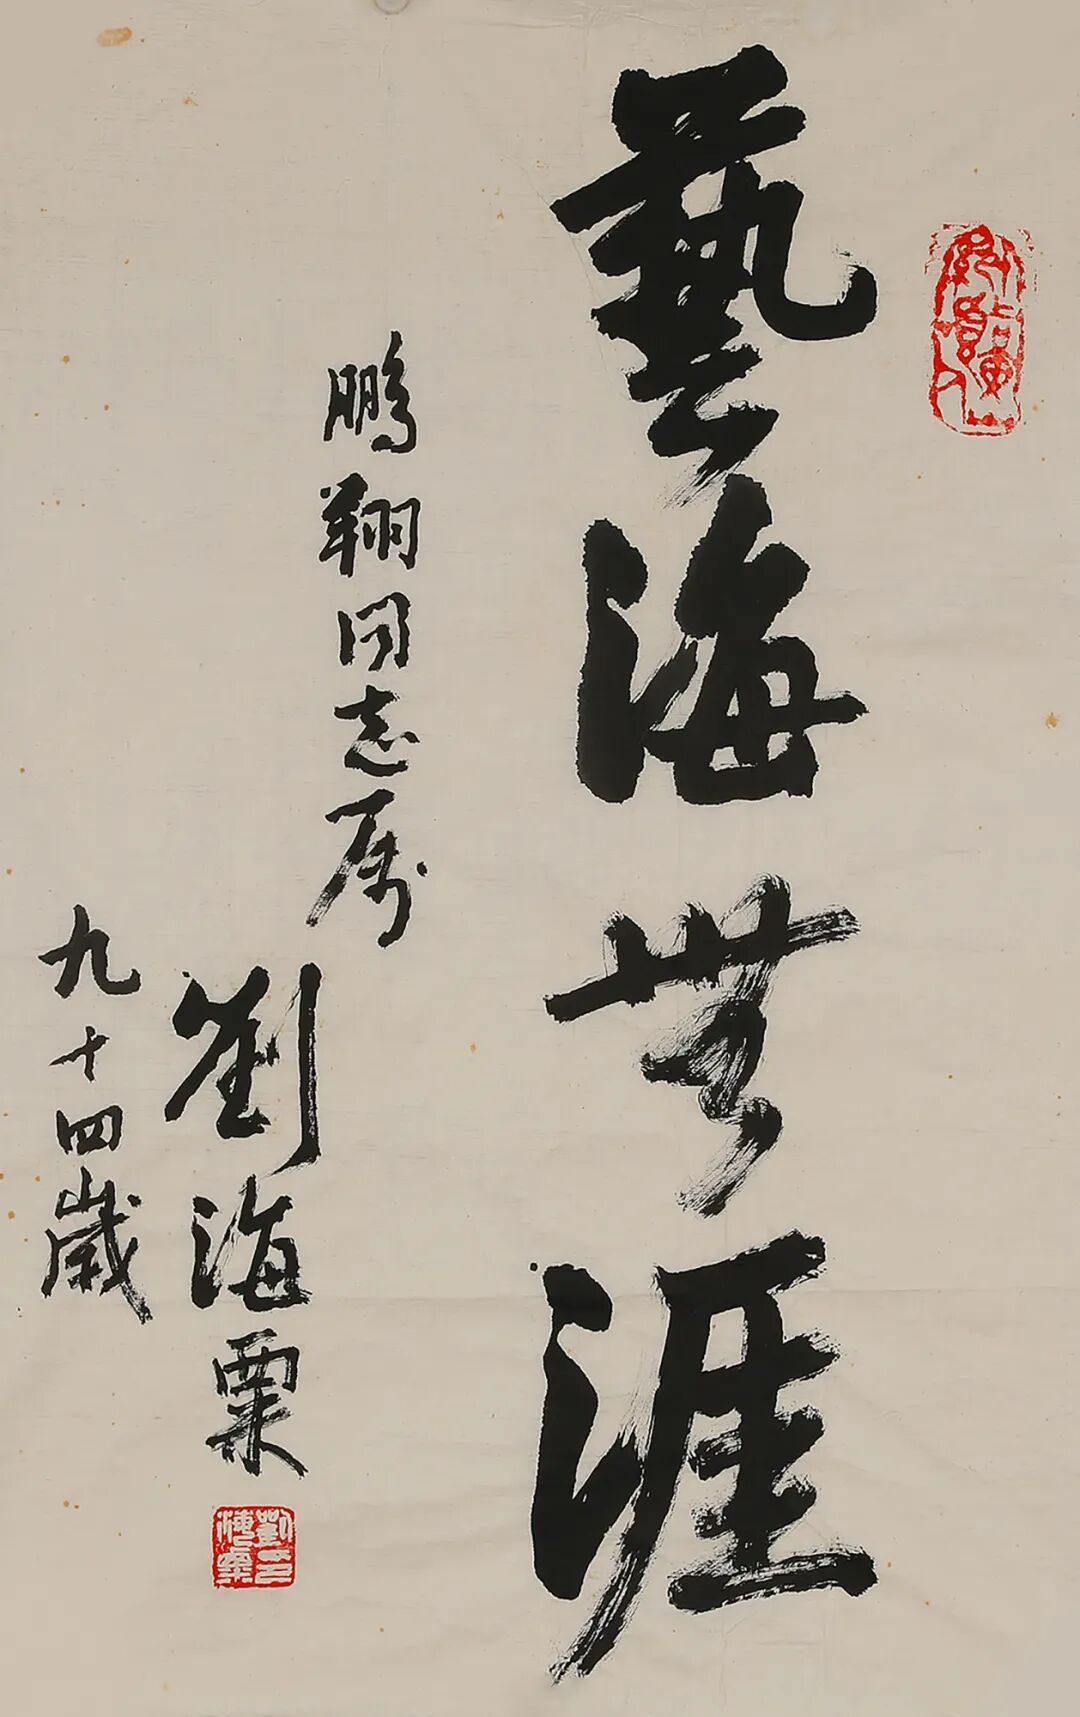 藝海無涯
鵬翔同志属
劉海粟
九十四歲
劉海粟印